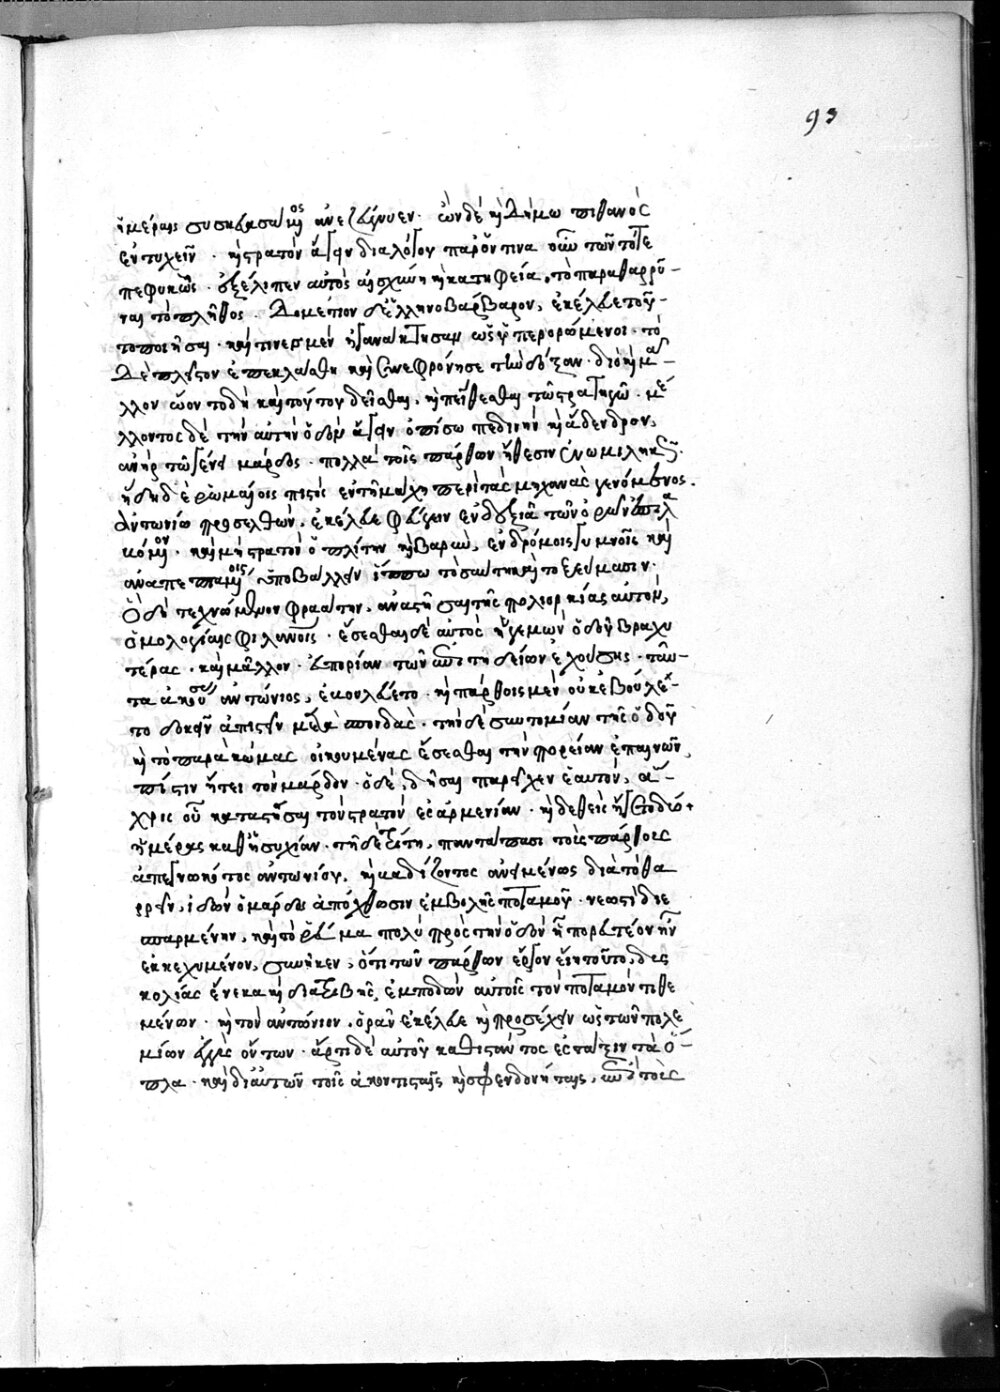 93
ἡμέραις συσκευασάμενος ἀνεζεύγνυεν. ὢν δὲ καὶ δήμῳ πιθανὸς
ἐντυχεῖν. καὶ στρατὸν ἄγειν διὰ λόγου παρ' ὁντινοῦν τῶν τότε
πεφυκὼς. ἐξέλιπεν αὐτὸς αἰσχύνῃ καὶ κατηφείᾳ, τὸ παραθαρρῦ-
ναι τὸ πλῆθος. Δομέτιον δὲ ἀηνόβαρβαρον, ἐκέλευε τοῦ-
το ποιῆσαι. καί τινες μὲν ἠγανάκτησαν ὡς ὑπερορώμενοι. τὸ
δὲ πλεῖστον ἐπεκλάσθη καὶ συνεφρόνησε τὴν δόξαν. διὸ καὶ μᾶλ-
λλον ᾤοντο δὴ καὶ τούτου δεῖσθαι, καὶ πείθεσθαι τῷ στρατηγῷ. μέ-
λλοντος δὲ τὴν αὐτὴν ὁδὸν ἄγειν ὀπίσω πεδινὴν καὶ ἄδενδρον,
ἀνὴρ τῷ γένει μάρδος. πολλὰ τοῖς πάρθων ἤθεσιν ἐνωμιληκὼς.
ἤδη δὲ ῥωμαίοις πιστὸς ἐν τῇ μάχῃ περὶ τὰς μηχανὰς γενόμενος.
ἀντωνίῳ προσελθὼν, ἐκέλευε φεύγειν ἐν δεξιᾷ τῶν ὀρῶν ἐπιλα-
κόμενον. καὶ μὴ στρατὸν ὁπλίτην καὶ βαρὺν, ἐν δρόμοις γυμνοῖς καὶ
ἀναπεπταμένοις ὑποβάλλειν ἵππῳ τοσαύτῃ καὶ τοξεύμασιν.
ὃ δὴ τεχνώμενον φραάτην, ἀναστῆσαι τῆς πολιορκίας αὐτὸν,
ὁμολογίαις φιλανθρώποις. ἔσεσθαι δὲ αὐτὸς ἡγεμὼν ὁδοῦ βραχυ
τέρας. καὶ μᾶλλον εὐπορίαν τῶν ἐπιτηδείων ἐχούσης. ταῦ-
τα ἀκούσας ἀντώνιος, ἐβουλεύετο. καὶ πάρθοις μὲν οὐκ ἐβούλε-
το δοκεῖν ἀπιστεῖν μετὰ σπονδὰς. τὴν δὲ συντομίαν τῆς ὁδοῦ
καὶ τὸ παρὰ κώμας οἰκουμένας ἔσεσθαι τὴν πορείαν ἐπαινῶν,
πίστιν ᾔτει τὸν μάρδον. ὁ δὲ, δῆσαι παρεῖχεν ἑαυτὸν, ἄ-
χρις οὗ καταστῆσαι τὸν στρατὸν ἐς ἀρμενίαν. καὶ δεθεὶς ἡγεῖτο δύο
ἡμέρας καθ' ἡσυχίαν. τῇ δὲ τρίτῃ, παντάπασι τοὺς πάρθους
ἀπεγνωκότος ἀντωνίου, καὶ βαδίζοντος ἀνειμένως διὰ τὸ θα
ρρεῖν, ἰδὼν ὁ μάρδος ἀπόχωσιν ἐμβολῆς ποταμοῦ νεωστὶ διε
σπαρμένην, καὶ τὸ ῥεῦμα πολὺ πρὸς τὴν ὁδὸν ᾗ πορευτέον ἦν
ἐκκεχυμένον, συνῆκεν, ὅτι τῶν πάρθων ἔργον εἴη τοῦτο, δυς
κολίας ἕνεκα καὶ διατριβῆς ἐμποδὼν αὐτοῖς τὸν ποταμὸν τιθε
μένων. καὶ τὸν ἀντώνιον, ὁρᾶν ἐκέλευε καὶ προσέχειν ὡς τῶν πολε
μίων ἐγγὺς ὄντων. ἄρτι δὲ αὐτοῦ καθιστάντος ἐς τάξιν τὰ ὅ-
πλα. καὶ δι' αὐτῶν τοῖς ἀκοντισταῖς καὶ σφενδονήταις, ἐπὶ τοὺς